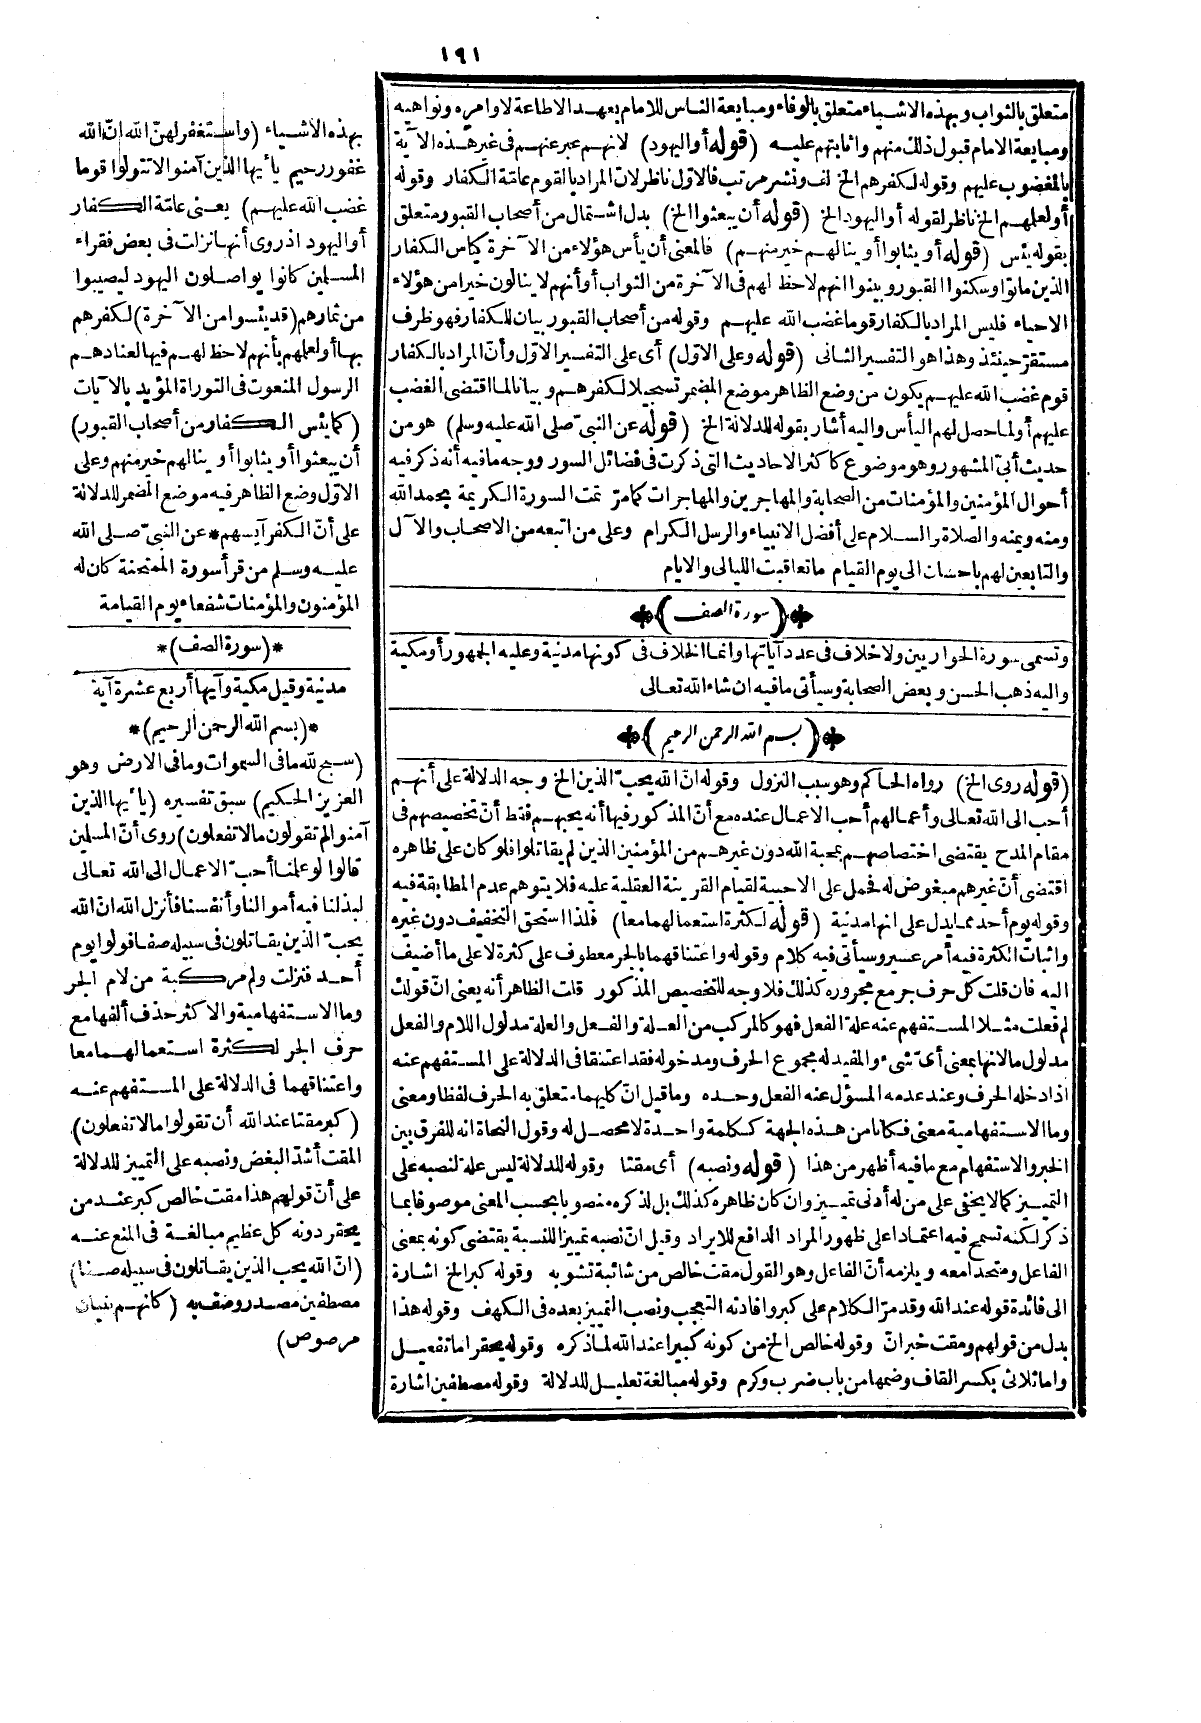 ١٩١
متعلق بالثواب وبهذه الاشياء متعلق بالوفاء ومبايعة الناس للامام بعهد الاطاعة لاوامره ونواهيه
ومبايعة الامام قبول ذلك منهم واثابتهم عليه (قوله أو اليهود) لانهم عبر عنهم فى غير هذه الآية
بالمغضوب عليهم وقوله لكفرهم الخ لف ونشر مرتب فالاول ناظر لان المراد بالقوم عامّة الكفار وقوله
أو لعلمهم الخ ناظر لقوله أو اليهود الخ (قوله أن يبعثوا الخ) بدل اشتمال من أصحاب القبور متعلق
بقوله يئس (قوله أو يثابوا أو ينالهم خير منهم) فالمعنى أن يأس هؤلاء من الآخرة كيأس الكفار
الذين ماتوا وسكنوا القبور وبينوا انهم لاحظ لهم فى الآخرة من الثواب أو أنهم لا ينالون خيرا من هؤلاء
الاحياء فليس المراد بالكفار قوما غضب الله عليهم وقوله من أصحاب القبور بيان للكفار فهو ظرف
مستقر حينئذ وهذا هو التفسير الثانى (قوله وعلى الاوّل) أى على التفسير الاوّل وأنّ المراد بالكفار
قوم غضب الله عليهم يكون من وضع الظاهر موضع المضمر تسجيلا لكفرهم وبيانا لما اقتضى الغضب
عليهم أو لما حصل لهم اليأس واليه أشار بقوله للدلالة الخ (قوله عن النبىّ صلى الله عليه وسلم) هو من
حديث أبىّ المشهور وهو موضوع كاكثر الاحاديث التى ذكرت فى فضائل السور ووجه مافيه أنه ذكر فيه
أحوال المؤمنين والمؤمنات من الصحابة والمهاجرين والمهاجرات كما مرّ تمت السورة الكريمة بحمد الله
ومنه ويمنه والصلاة والسلام على أفضل الانبياء والرسل الكرام وعلى من اتبعه من الاصحاب والآل
والتابعين لهم باحسان الى يوم القيام ما تعاقبت الليالى والايام
(سورة الصف)
وتسمى سورة الحواريين ولا خلاف فى عدد آياتها وانما الخلاف فى كونها مدنية وعليه الجمهور أو مكية
واليه ذهب الحسن وبعض الصحابة وسيأتى مافيه ان شاء الله تعالى
(بسم الله الرحمن الرحيم)
(قوله روى الخ) رواه الحاكم وهو سبب النزول وقوله انّ الله يحبّ الذين الخ وجه الدلالة على أنهم
أحب الى الله تعالى وأعمالهم أحب الاعمال عنده مع أنّ المذكور فيها أنه يحبهم فقط أنّ تخصيصهم فى
مقام المدح يقتضى اختصاصهم بمحبة الله دون غيرهم من المؤمنين الذين لم يقاتلوا فلو كان على ظاهره
اقتضى أنّ غيرهم مبغوض له فحمل على الاحبية لقيام القرينة العقلية عليه فلا يتوهم عدم المطابقة فيه
وقوله يوم أحد مما يدل على انها مدنية (قوله لكثرة استعمالهما معا) فلذا استحق التخفيف دون غيره
واثبات الكثرة فيه أمر عسير وسيأتى فيه كلام وقوله واعتناقهما بالجر معطوف على كثرة لا على ما أضيف
اليه فان قلت كل حرف جر مع مجروره كذلك فلا وجه للتخصيص المذكور قلت الظاهر أنه يعنى انّ قولك
لم فعلت مثلا المستفهم عنه علة الفعل فهو كالمركب من العلة والفعل والعلة مدلول اللام والفعل
مدلول ما لانها بمعنى أىّ شىء والمفيد له مجموع الحرف ومدخوله فقد اعتنقا فى الدلالة على المستفهم عنه
اذا دخله الحرف وعند عدمه المسؤل عنه الفعل وحده وما قيل انّ كليهما متعلق به الحرف لفظا ومعنى
وما الاستفهامية معنى فكانا من هذه الجهة ككلمة واحدة لا محصل له وقول النحاة انه للفرق بين
الخبر والاستفهام مع مافيه أظهر من هذا (قوله ونصبه) أى مقتا وقوله للدلالة ليس علة لنصبه على
التمييز كما لا يخفى على من له أدنى تمييز وان كان ظاهره كذلك بل لذكره منصوبا بحسب المعنى موصوفا بما
ذكر لكنه تسمح فيه اعتمادا على ظهور المراد الدافع للايراد وقيل انّ نصبه تمييزا للنسبة يقتضى كونه بمعنى
الفاعل ومتحدا معه ويلزمه أنّ الفاعل وهو القول مقت خالص من شائبة تشوبه وقوله كبر الخ اشارة
الى فائدة قوله عند الله وقد مرّ الكلام على كبر وافادته التعجب ونصب التمييز بعده فى الكهف وقوله هذا
بدل من قولهم ومقت خبر انّ وقوله خالص الخ من كونه كبيرا عند الله لما ذكره وقوله يحقر اما تفعيل
واما ثلاثى بكسر القاف وضمها من باب ضرب وكرم وقوله مبالغة تعليل للدلالة وقوله مصطفين اشارة
بهذه الأشياء (واستغفر لهنّ الله إنّ الله
غفور رحيم يا أيها الذين آمنوا لا تتولوا قوما
غضب الله عليهم) يعنى عامّة الكفار
أو اليهود اذ روى أنها نزلت فى بعض فقراء
المسلمين كانوا يواصلون اليهود ليصيبوا
من ثمارهم (قد يئسوا من الآخرة) لكفرهم
بها أو لعلمهم بأنهم لاحظ لهم فيها لعنادهم
الرسول المنعوت فى التوراة المؤيد بالآيات
(كما يئس الكفار من أصحاب القبور)
أن يبعثوا أو يثابوا أو ينالهم خير منهم وعلى
الاوّل وضع الظاهر فيه موضع المضمر للدلالة
على أنّ الكفر آيسهم * عن النبىّ صلى الله
عليه وسلم من قرأ سورة الممتحنة كان له
المؤمنون والمؤمنات شفعاء يوم القيامة
*(سورة الصف)*
مدنية وقيل مكية وآيها أربع عشرة آية
*(بسم الله الرحمن الرحيم)*
(سبح لله مافى السموات ومافى الارض وهو
العزيز الحكيم) سبق تفسيره (يا أيها الذين
آمنوا لم تقولون ما لا تفعلون) روى أنّ المسلمين
قالوا لو علمنا أحبّ الاعمال الى الله تعالى
لبذلنا فيه أموالنا وأنفسنا فأنزل الله انّ الله
يحبّ الذين يقاتلون فى سبيله صفا فولوا يوم
أحد فنزلت ولم مركبة من لام الجر
وما الاستفهامية والاكثر حذف ألفها مع
حرف الجر لكثرة استعمالهما معا
واعتناقهما فى الدلالة على المستفهم عنه
(كبر مقتا عند الله أن تقولوا ما لا تفعلون)
المقت أشدّ البغض ونصبه على التمييز للدلالة
على أنّ قولهم هذا مقت خالص كبر عند من
يحقر دونه كل عظيم مبالغة فى المنع عنه
(انّ الله يحب الذين يقاتلون فى سبيله صفا)
مصطفين مصدر وصف به (كأنهم بنيان
مرصوص)